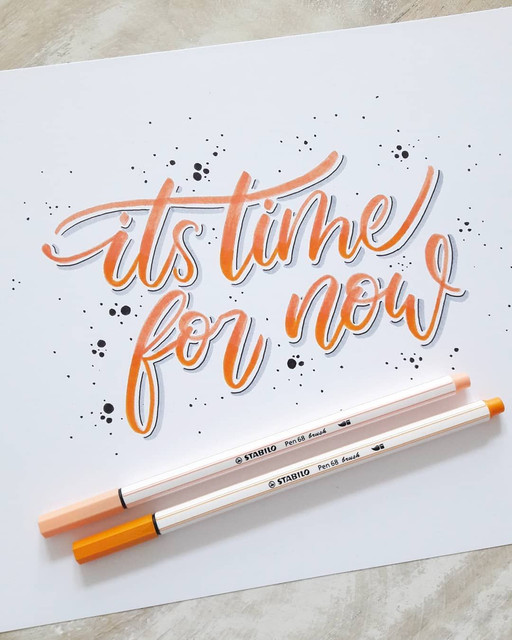 its time
for now
STABILO Pen 68 brush
STABILO Pen 68 brush